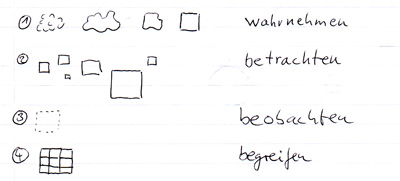 ① wahrnehmen
② betrachten
③ beobachten
④ begreifen